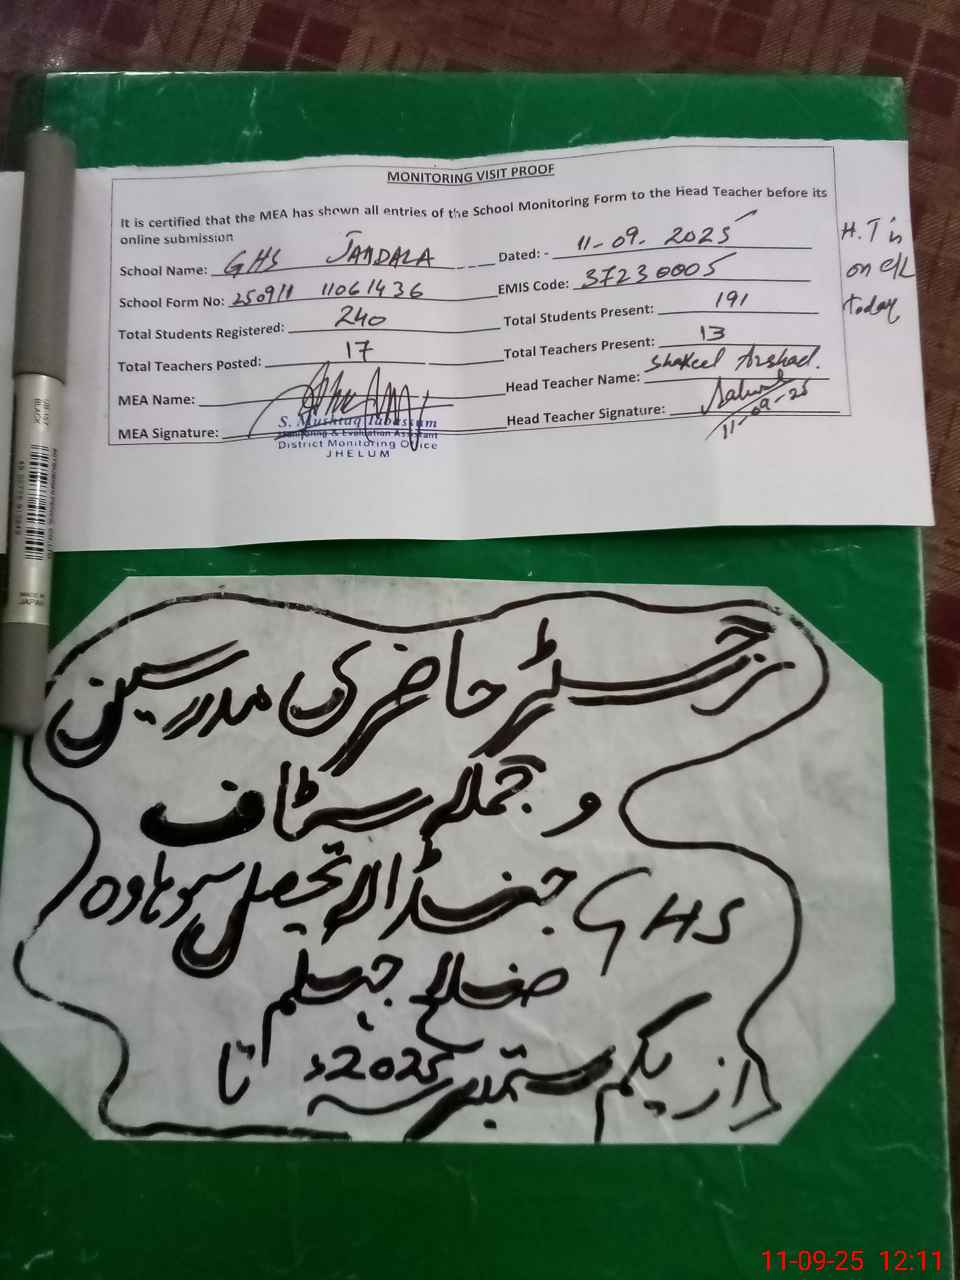 MONITORING VISIT PROOF
It is certified that the MEA has shown all entries of the School Monitoring Form to the Head Teacher before its
online submission
School Name: GHS JANDALA Dated: - 11-09-2025
School Form No: 250911 11061436 EMIS Code: 37230005
Total Students Registered: 240 Total Students Present: 191
Total Teachers Posted: 17 Total Teachers Present: 13
MEA Name: Head Teacher Name: Shakeel Arshad.
MEA Signature: Head Teacher Signature:
11-09-25
S. Mushtaq Tabassum
Monitoring & Evaluation Assistant
District Monitoring Office
JHELUM
H.T is
on c/L
today
BLACK
MADE IN
JAPAN
رجسٹر حاضری مدرسین
و جملہ سٹاف
GHS جنڈالہ تحصیل سوہاوہ
ضلع جہلم
از یکم ستمبر 2025ء تا
11-09-25 12:11